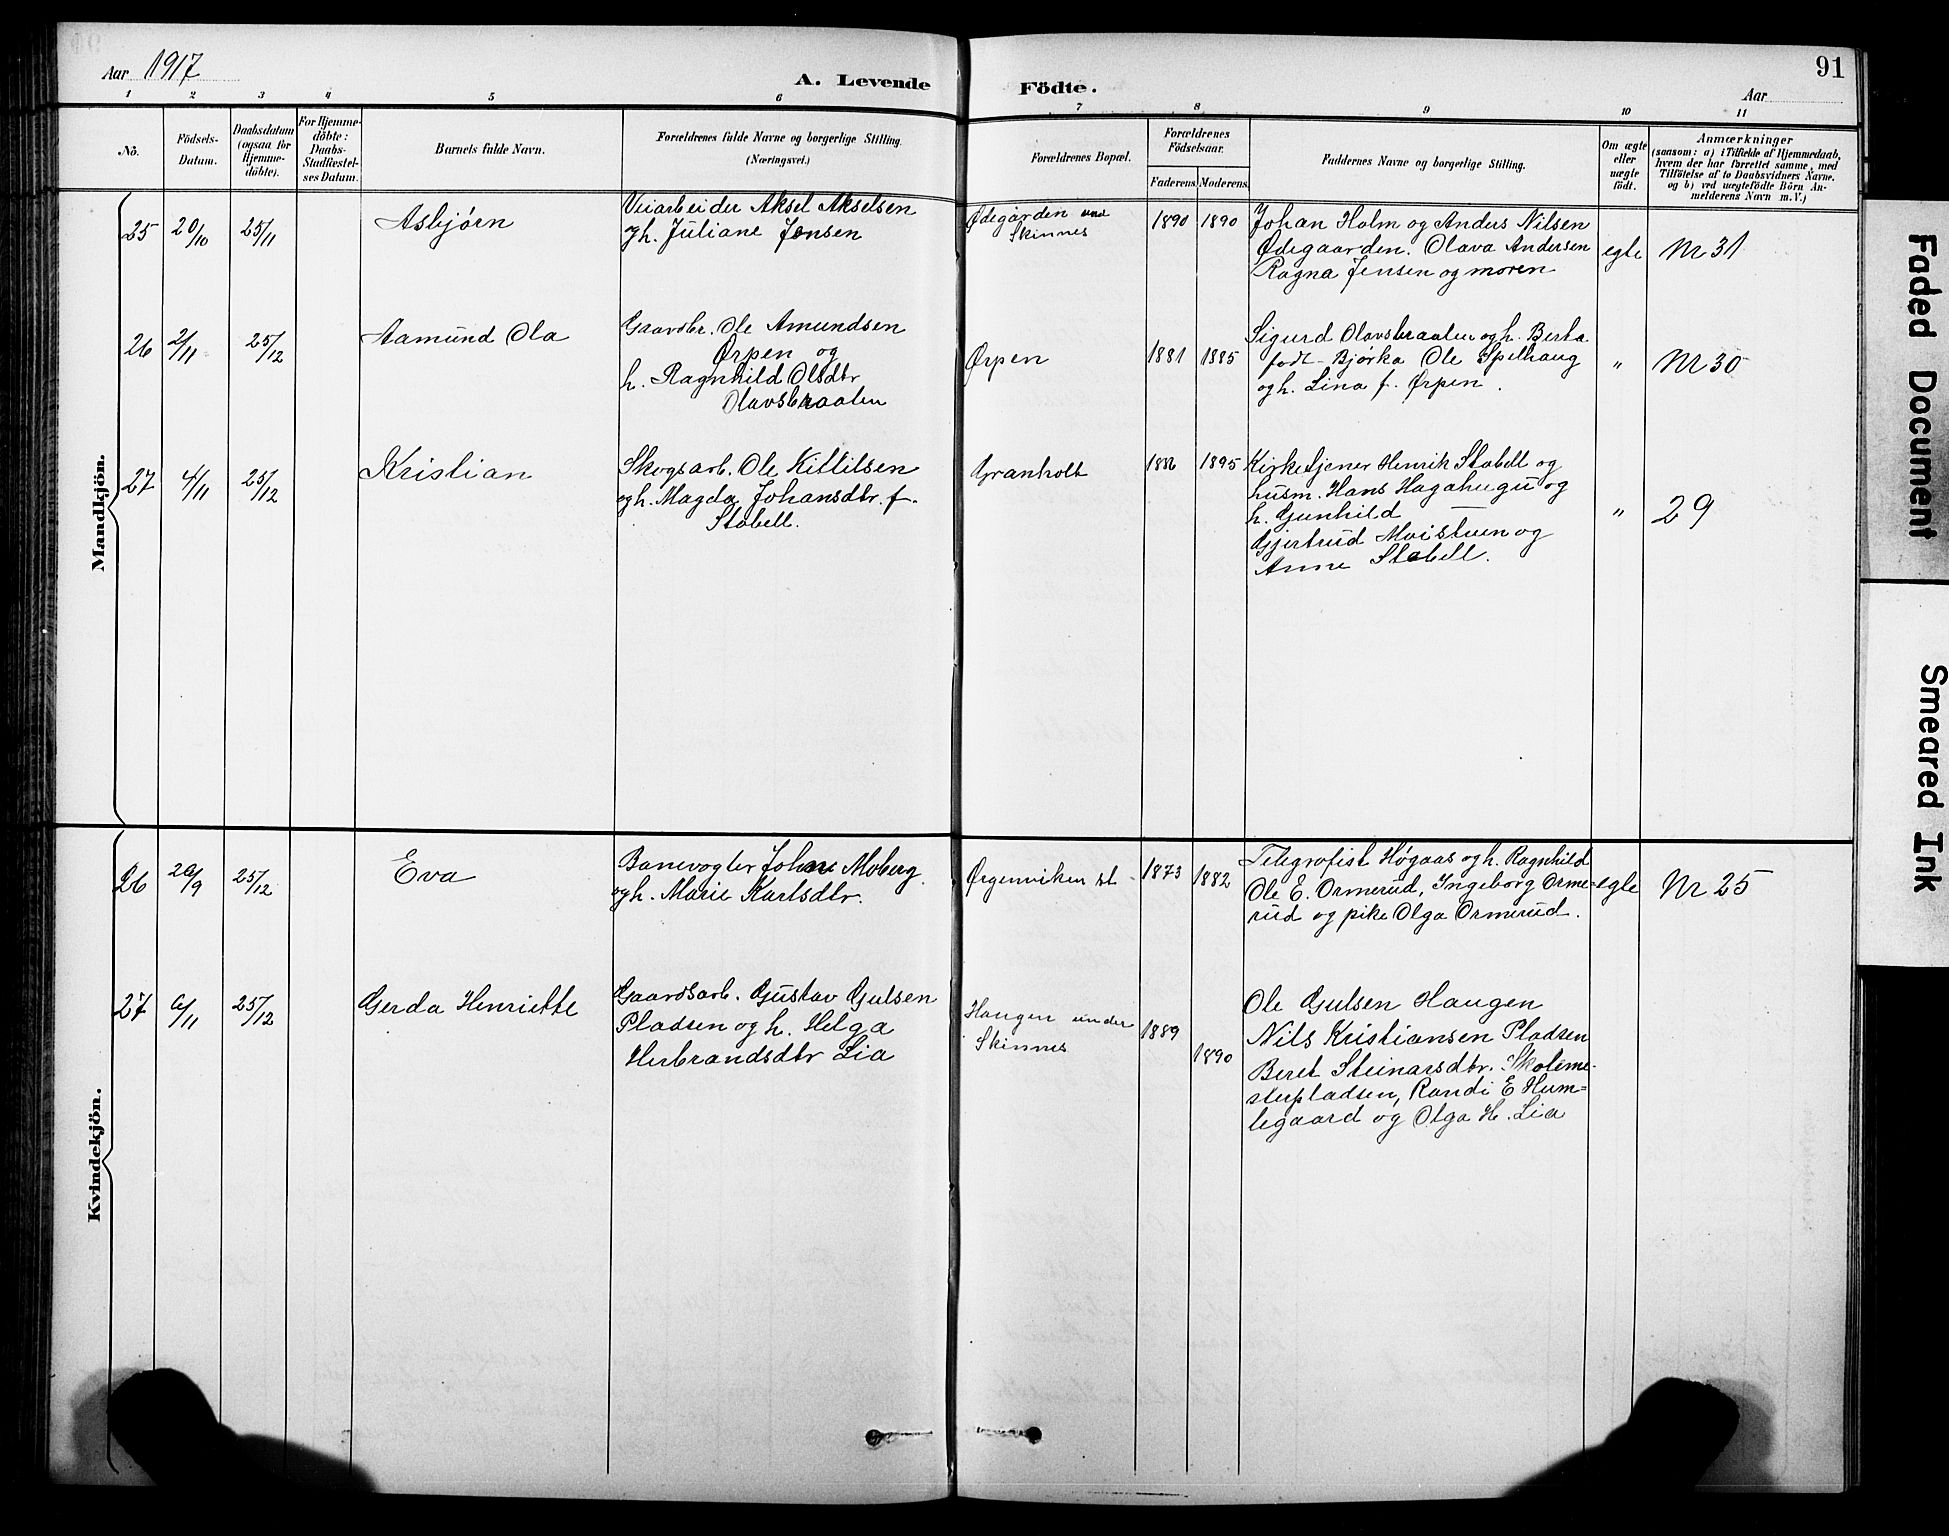 Aar 1917
A. Levende Födte.
91
Aar
1 2 3 4 5 6 7 8 9 10 11
No.
Födsels-Datum.
Daabsdatum (ogsaa for Hjemme-döbte).
For Hjemme-döbte: Daabs-Stadfæstel-ses Datum.
Barnets fulde Navn.
Forældrenes fulde Navne og borgerlige Stilling. (Næringsvei.)
Forældrenes Bopæl.
Forældrenes Födselsaar.
Faderens Moderens
Faddernes Navne og borgerlige Stilling.
Om ægte eller uægte födt.
Anmærkninger
(saasom: a) i Tilfælde af Hjemmedaab,
hvem der har forrettet samme, med
Tilföielse af to Daabsvidners Navne.
og b) ved uægtefödte Börn An-
melderens Navn m. V.)
Mandkjön.
25 20/10 25/11 Asbjørn
Veiarbeider Aksel Akselsen
og h. Juliane Jensen
Ødegården und
Skinnes
1890 1890
Johan Holm og Anders Nilsen
Ødegaarden. Olava Andersen
Ragna Jensen og moren
egte Nr 31
26 2/11 25/12 Aamund Ola
Gaardbr. Ole Amundsen
Ørpen og
h. Ragnhild Olsdtr
Olavsbraaten
Ørpen
1881 1885
Sigurd Olavsbraaten og h. Berta
født Bjørka Ole Spelhaug
og h. Lina f. Ørpen.
" Nr 30
27 4/11 25/12 Kristian
Skogsarb. Ole Kittilsen
og h. Magda Johansdtr. f.
Stabell.
Granholt
1895
Kirketjener Henrik Stabell og
husm. Hans Hagahugu og
h. Gunhild
Gjertrud Moistuen og
Anne Stabell.
" 29
Kvindekjön.
26 26/9 25/12 Eva
Banevogter Johan Moberg
og h. Marie Karlsdtr.
Ørgenviken st
1873 1882
Telegrafist Høgaas og h. Ragnhild
Ole E. Ormerud, Ingeborg Orme=
rud og pike Olga Ormerud.
egte Nr 25
27 6/11 25/12 Gerda Henriette
Gaardsarb. Gustav Gulsen
Pladsen og h. Helga
Herbrandsdtr Lia
Haugen under
Skinnes
1889 1890
Ole Gulsen Haugen
Nils Kristiansen Pladsen
Beret Steinarsdtr. Skoleme-
sterpladsen, Randi E Hum=
legaard og Olga H. Lia
Faded Document
Smeared Ink